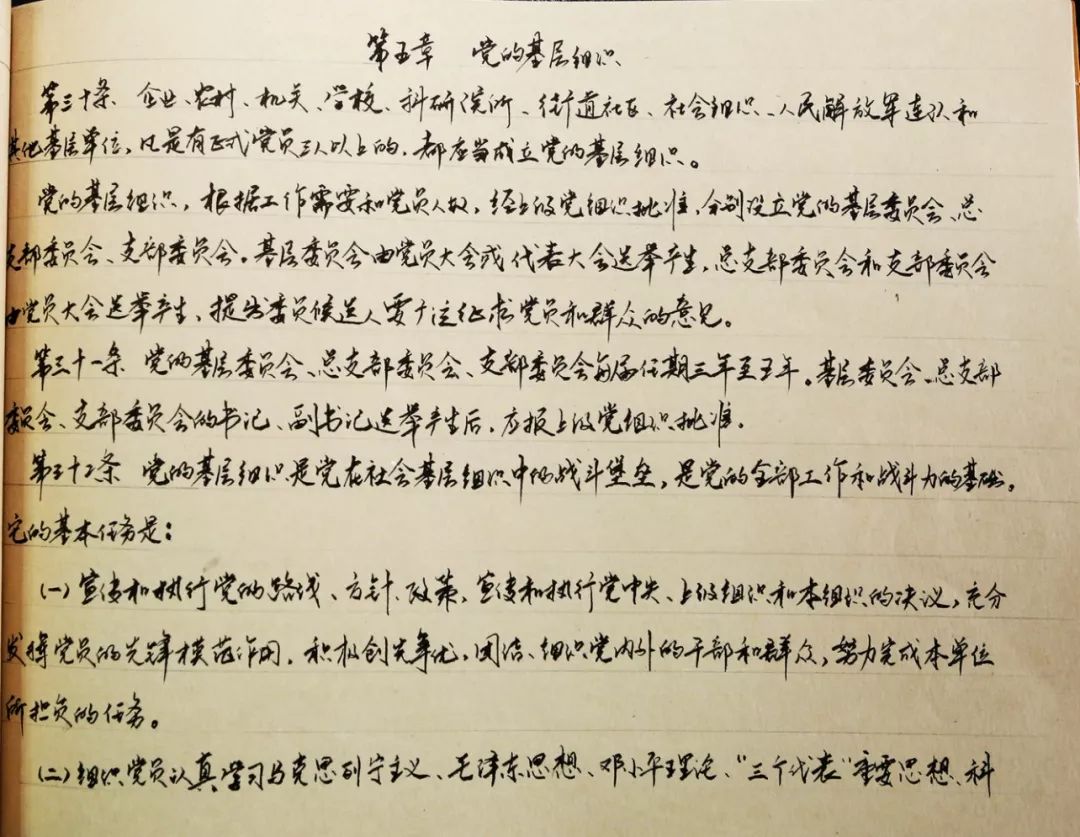 第五章 党的基层组织
第三十条 企业、农村、机关、学校、科研院所、街道社区、社会组织、人民解放军连队和
其他基层单位,凡是有正式党员三人以上的,都应当成立党的基层组织。
党的基层组织,根据工作需要和党员人数,经上级党组织批准,分别设立党的基层委员会、总
支部委员会、支部委员会。基层委员会由党员大会或代表大会选举产生,总支部委员会和支部委员会
由党员大会选举产生,提出委员候选人要广泛征求党员和群众的意见。
第三十一条 党的基层委员会、总支部委员会、支部委员会每届任期三年至五年。基层委员会、总支部
委员会、支部委员会的书记、副书记选举产生后,应报上级党组织批准。
第三十二条 党的基层组织是党在社会基层组织中的战斗堡垒,是党的全部工作和战斗力的基础。
它的基本任务是:
(一)宣传和执行党的路线、方针、政策,宣传和执行党中央、上级组织和本组织的决议,充分
发挥党员的先锋模范作用,积极创先争优,团结、组织党内外的干部和群众,努力完成本单位
所担负的任务。
(二)组织党员认真学习马克思列宁主义、毛泽东思想、邓小平理论、“三个代表”重要思想、科